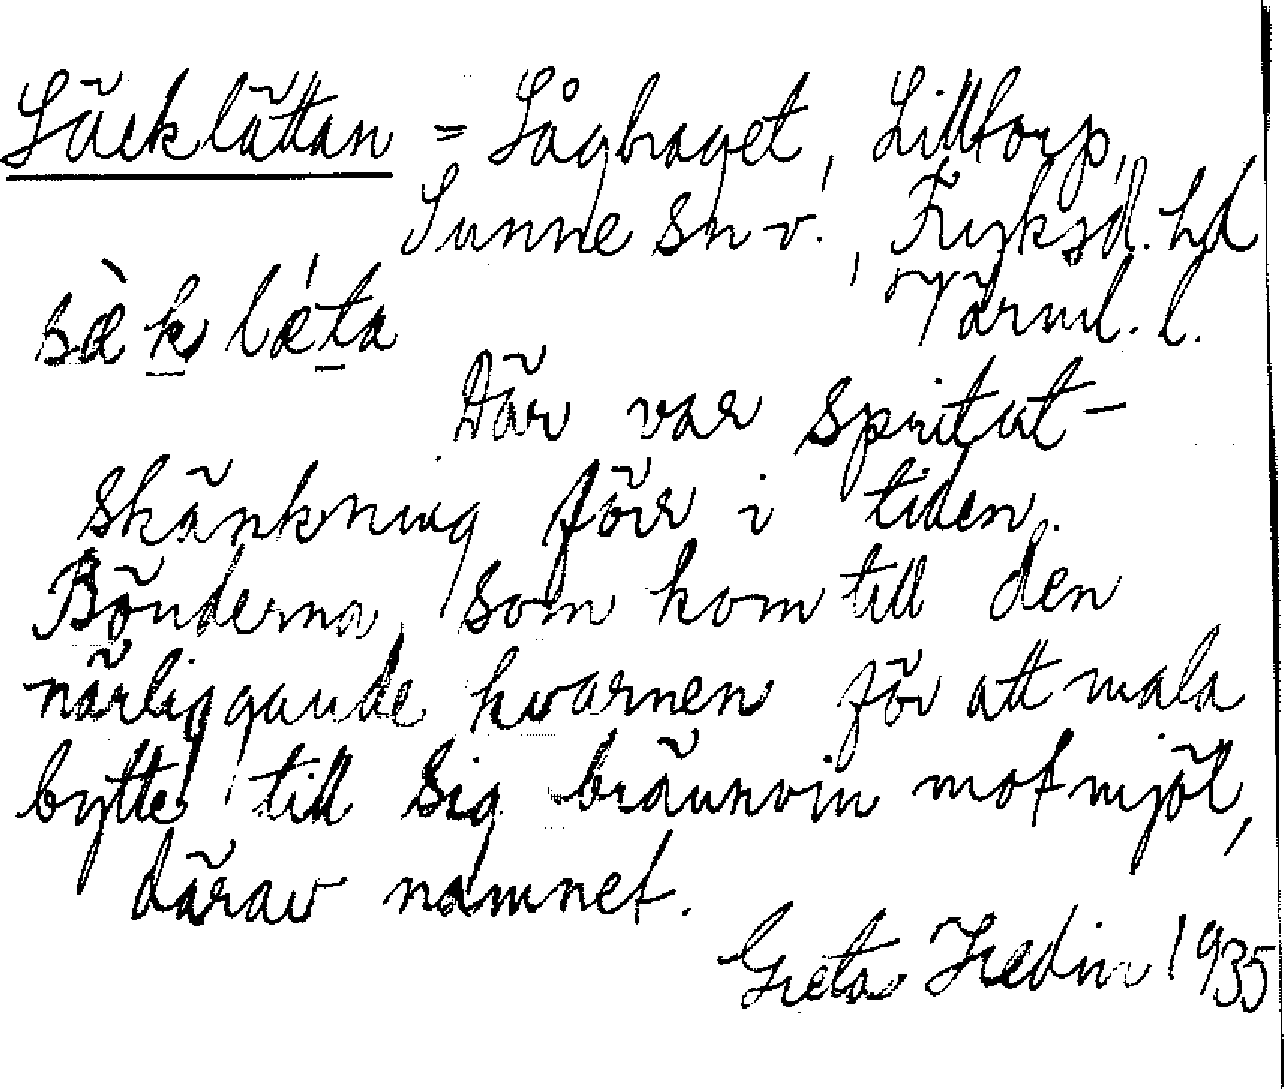 Säcklättan = Såghaget, Lilltorp,
Sunne sn v., Fryksd. hd
sæ̀k lǽta Värml. l.
Där var spritut-
skänkning förr i tiden.
Bönderna, som kom till den
närliggande kvarnen för att mala
bytte till sig brännvin mot mjöl,
därav namnet.
Greta Hedin 1935